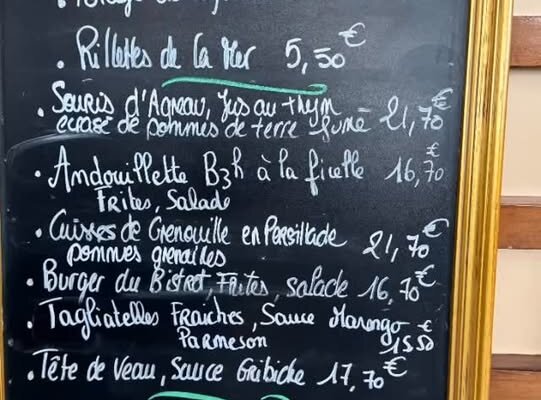 . Rillettes de la Mer 5,50€
. Souris d'Agneau, Jus au thym
écrasé de pommes de terre fumé 21,70€
. Andouillette B3h à la ficelle 16,70€
Frites, Salade
. Cuisses de Grenouille en Persillade
pommes grenailles 21,70€
. Burger du Bistrot, Frites, salade 16,70€
. Tagliatelles Fraiches, Sauce Marengo
Parmeson 15,50€
. Tête de Veau, Sauce Gribiche 17,70€